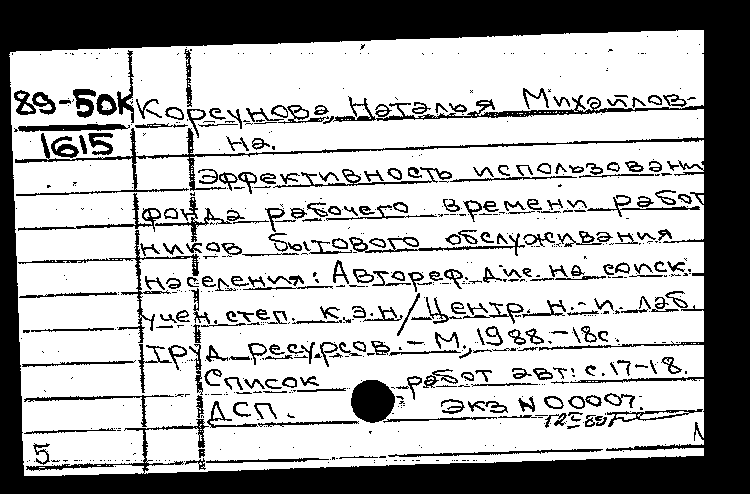 89-50К Корсунова, Наталья Михайлов-
1615 на.
Эффективность использовани
фонда рабочего времени работ
ников бытового обслуживания
населения: Автореф. дис. на соиск.
учен. степ. к.э.н. / Центр. н.-и. лаб.
труд. ресурсов. - М., 1988. - 18с.
Список работ авт.: с. 17-18.
ДСП. Экз N 00007.
5